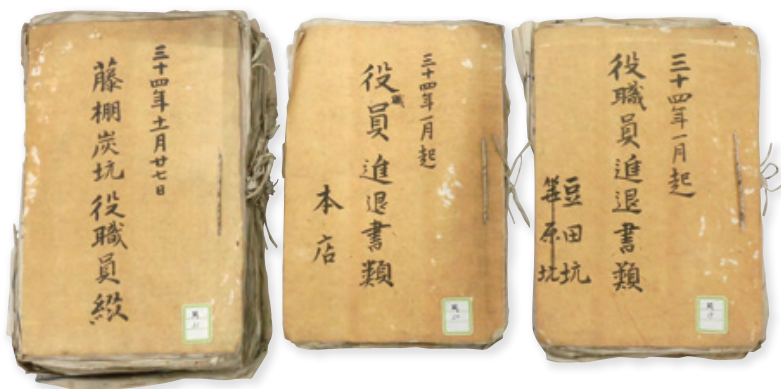 三十四年十一月廿七日
藤棚炭坑役職員綴
三十四年一月起
役職員進退書類
本店
三十四年一月起
役職員進退書類
豆田坑